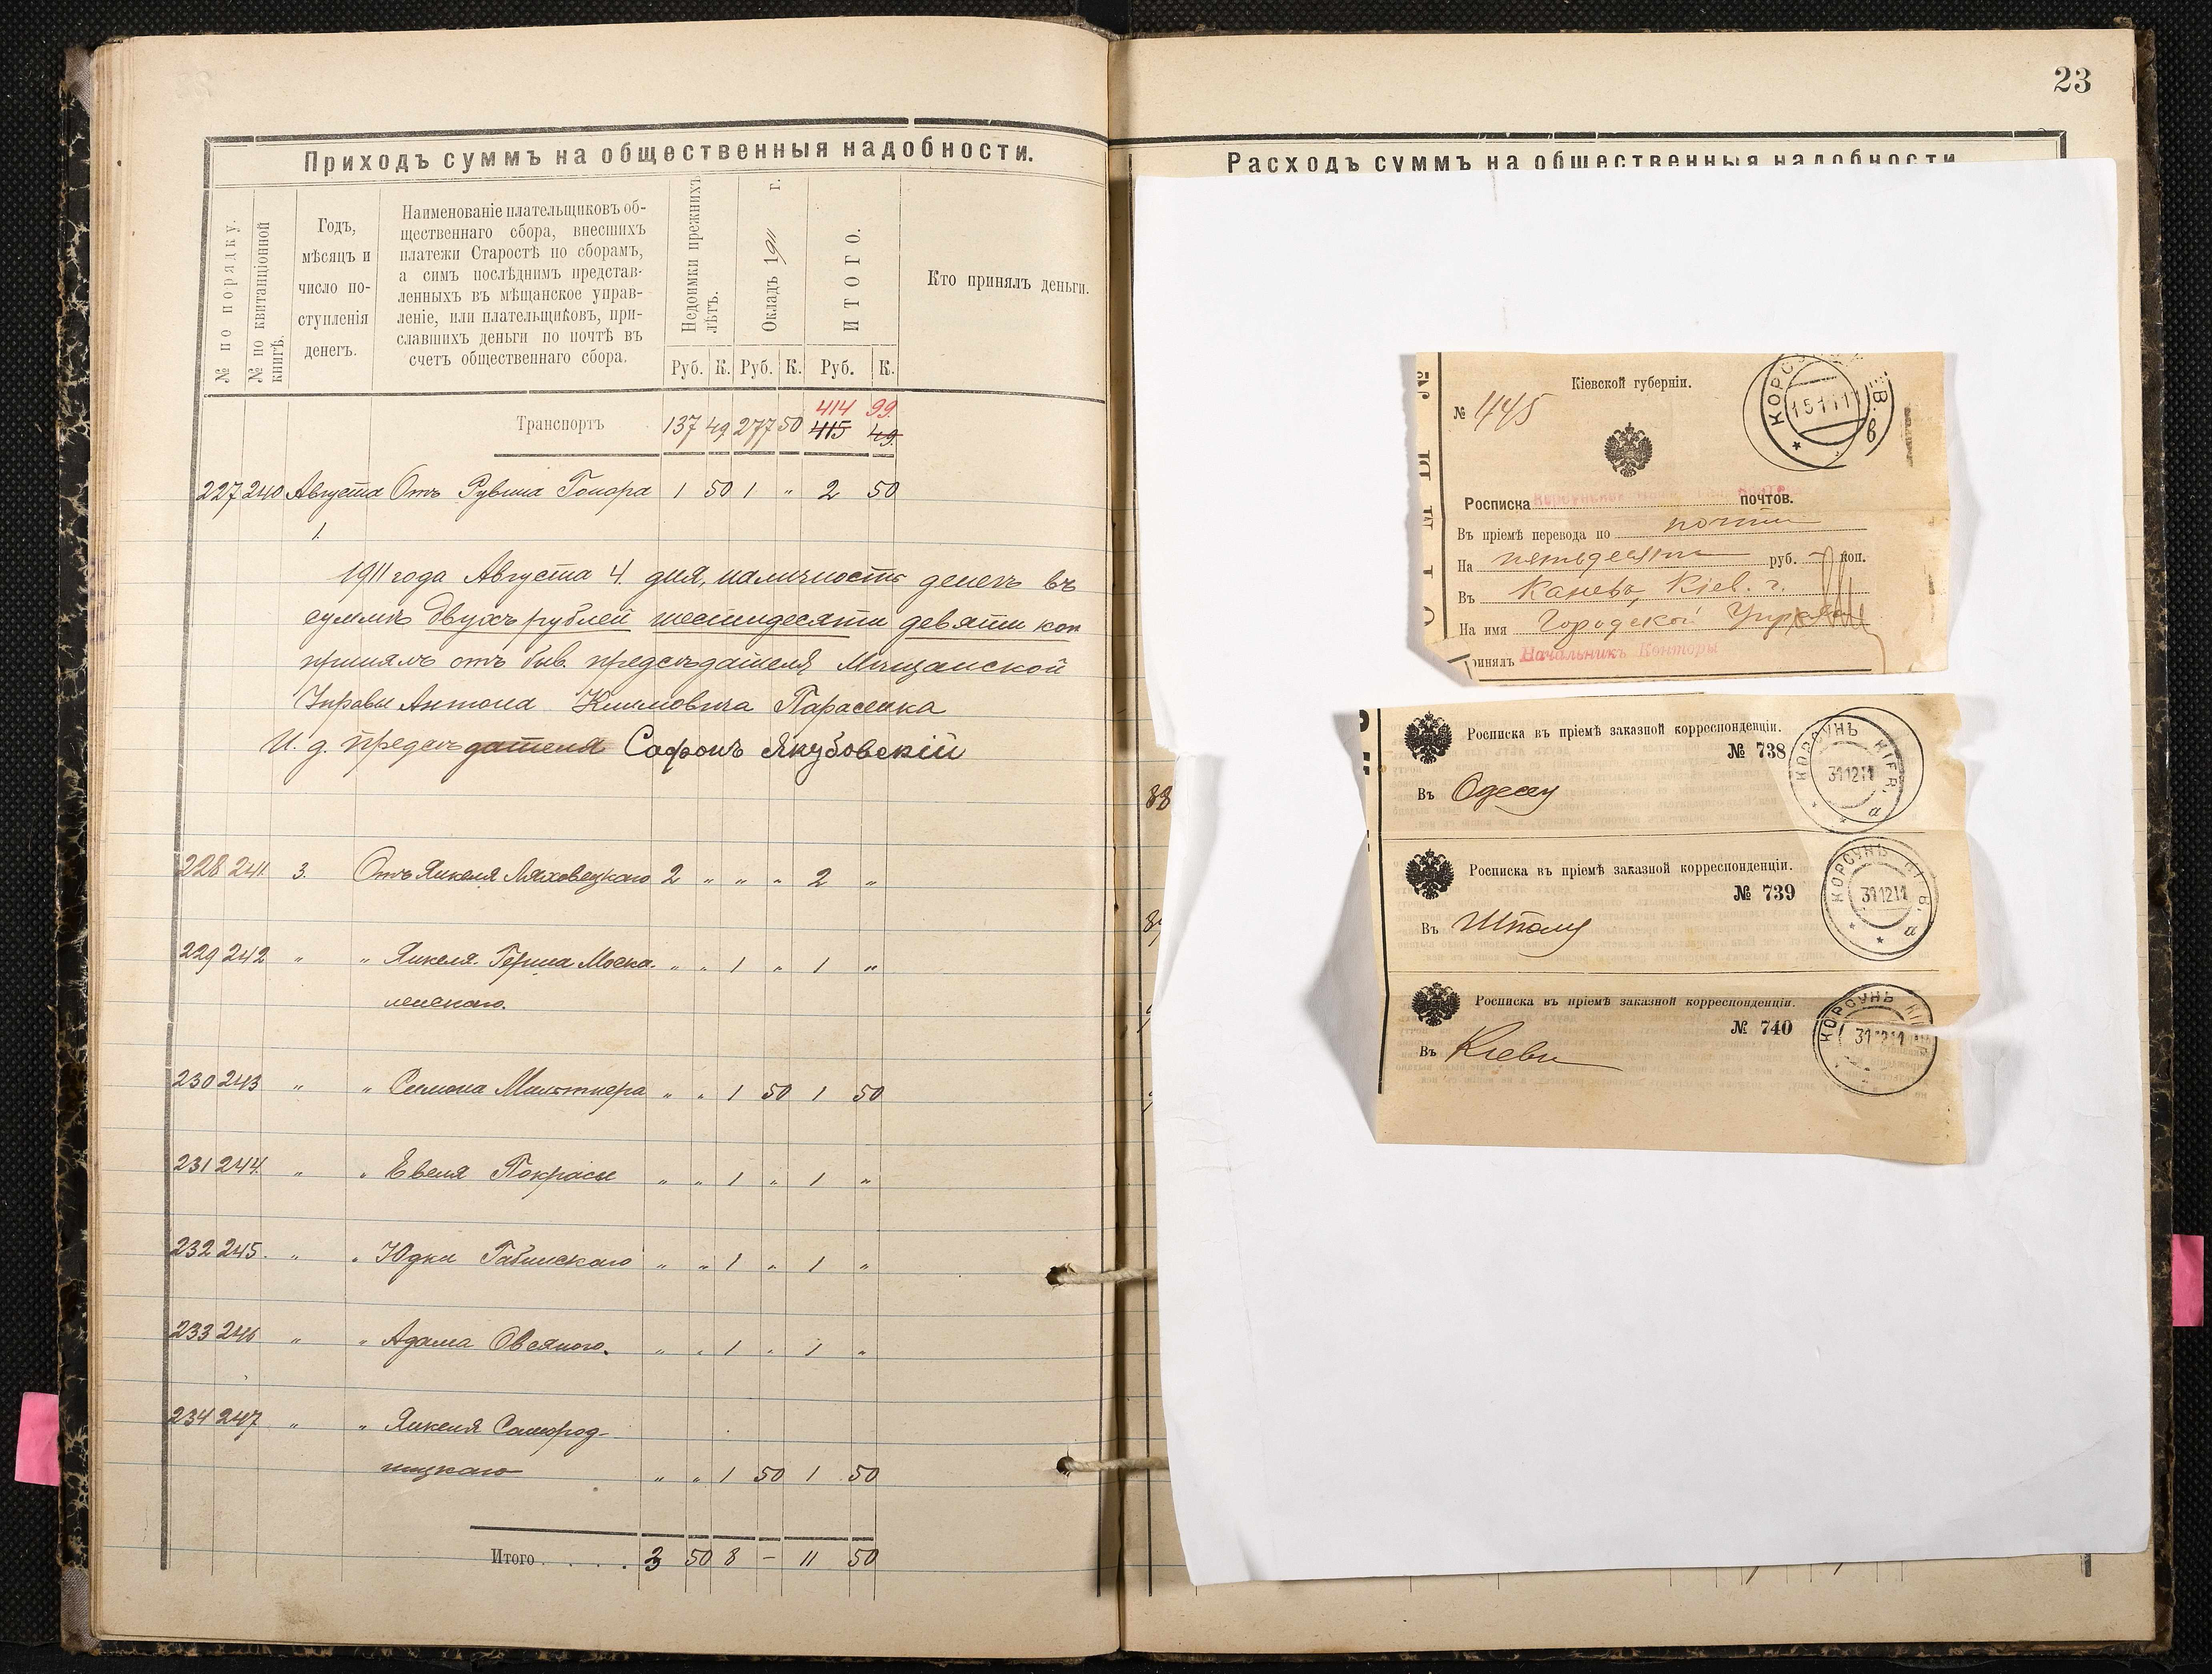 Приходъ суммъ на общественныя надобности.
№ по порядку.
№ по квитанціонной книгѣ.
Годъ,
мѣсяцъ и
число по-
ступленія
денегъ.
Наименованіе плательщиковъ об-
щественнаго сбора, внесшихъ
платежи Старостѣ по сборамъ,
а симъ послѣднимъ представ-
ленныхъ въ мѣщанское управ-
леніе, или плательщиковъ, при-
славшихъ деньги по почтѣ въ
счетъ общественнаго сбора.
Недоимки прежнихъ лѣтъ.
Окладъ 1911 г.
ИТОГО.
Кто принялъ деньги.
Руб. К. Руб. К. Руб. К.
414 99.
Транспортъ 137 49 277 50 415 49.
227 240 Августа Отъ Рувина Гонора 1 50 1 " 2 50
1.
1911 года Августа 4. дня, наличность денегъ въ
суммѣ двухъ рублей шестидесяти девяти коп
принялъ отъ быв. предсѣдателя Мѣщанской
Управы Антона Климовича Парасенка
И. д. предсѣдателя Софонъ Якубовскій
228 241. 3. Отъ Янкеля Ляховецкаго 2 " " " 2 "
229 242 " " Янкеля Герша Моска- " " 1 " 1 "
ленскаго.
230 243 " " Симона " " 1 50 1 50
231 244. " " Евеля Покрасы " " 1 " 1 "
232 245. " " Юдка " " 1 " 1 "
233 246 " " Адама Овсяного. " " 1 " 1 "
234 247 " " Янкеля Самород-
ницкаго " " 1 50 1 50
Итого . . . . . 3 50 8 - 11 50
23
Расходъ суммъ на общественныя надобности
88
Кіевской губерніи.
№ 445
КОРСУНЬ КІЕВ. в
Росписка почтов.
Въ пріемѣ перевода по почтѣ
На пятьдесятъ руб. — коп.
Въ Каневъ, Кіев. г.
На имя Городской
ринялъ Начальникъ Конторы
Росписка въ пріемѣ заказной корреспонденціи.
№ 738
Въ Одессу
КОРСУНЬ КІЕВ. 311211 а
Росписка въ пріемѣ заказной корреспонденціи.
№ 739
Въ Шполу
КОРСУНЬ КІЕВ. 311211 а
Росписка въ пріемѣ заказной корреспонденціи.
№ 740
Въ Кіевъ
КОРСУНЬ